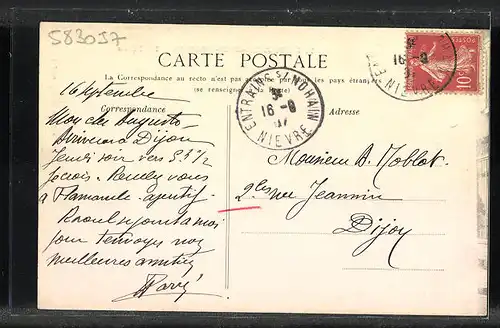 583057
CARTE POSTALE
La Correspondance au recto n'est pas acceptée par tous les pays étrangers
(se renseigner à la Poste)
Correspondance
Adresse
ENTRAINS S/ NOHAIN
16 - 9
NIEVRE
10c
16 Septembre
Mon cher Auguste
Arriverai Dijon
Jeudi soir vers 5 h 1/2
Rendez vous
à Flamande apéritif
Raoul se joint à moi
pour t'envoyer nos
meilleures amitiés
Monsieur A. Noblot
2 bis rue Jeannin
Dijon